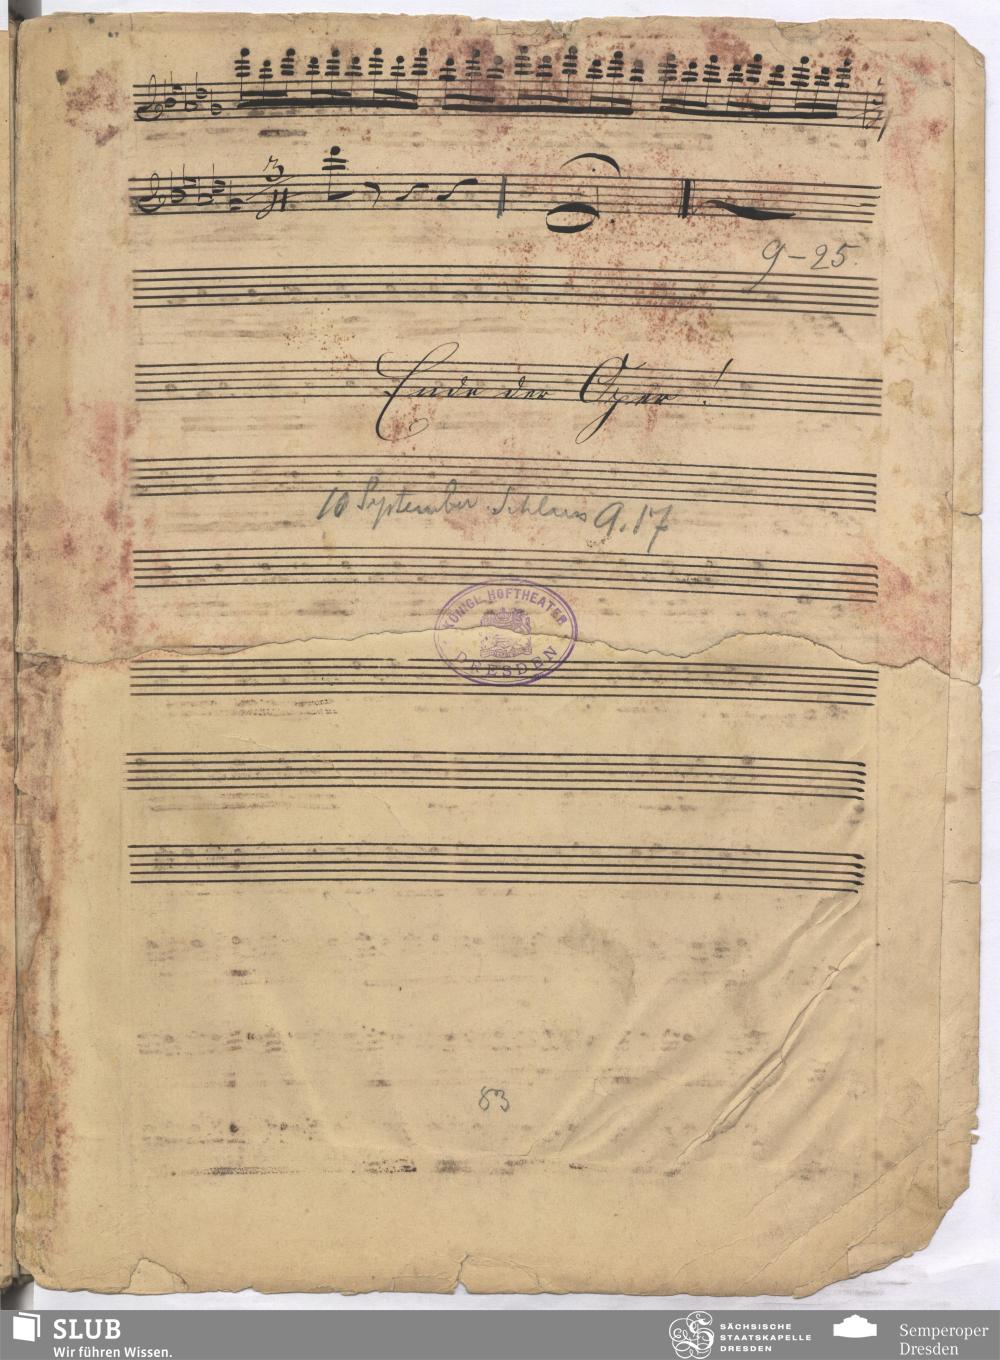 3
4
9-25.
Ende der Oper!
10 September Schluss 9.17
KÖNIGL. HOFTHEATER
DRESDEN
83
SLUB
Wir führen Wissen.
SÄCHSISCHE
STAATSKAPELLE
DRESDEN
Semperoper
Dresden